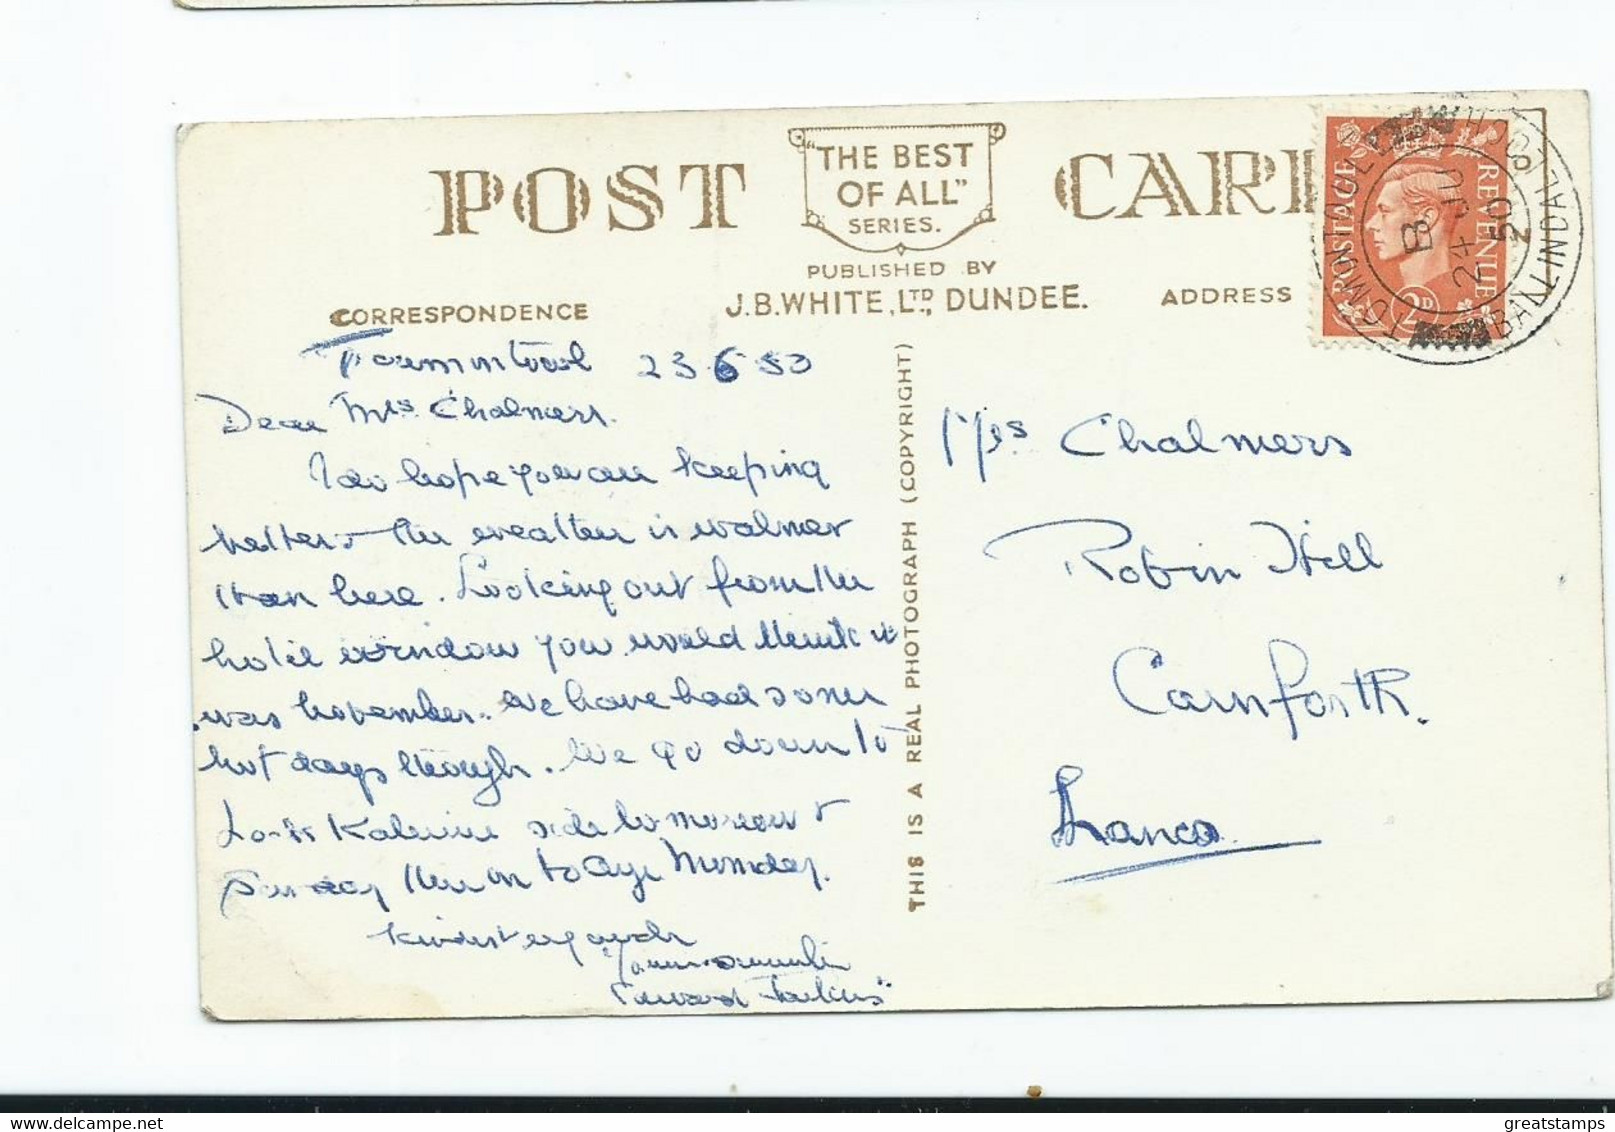 POST CARD
"THE BEST
OF ALL"
SERIES.
PUBLISHED BY
J.B. WHITE, LTD., DUNDEE.
CORRESPONDENCE
ADDRESS
POSTAGE REVENUE
2D
TOMINTOUL BALLINDALLOCH
B
24 JU
50
THIS IS A REAL PHOTOGRAPH (COPYRIGHT)
23 6 50
Dear Mrs Chalmers.
I do hope you are keeping
better & the weather is warmer
than here. Looking out from the
hotel window you would think it
was November. We have had some
hot days though. We go down to
Loch Katerine side tomorrow &
Sunday then on to Ayr Monday.
Kindest regards
Yours sincerely
Edward
Mrs Chalmers
Robin Hill
Carnforth.
Lancs.
greatstamps